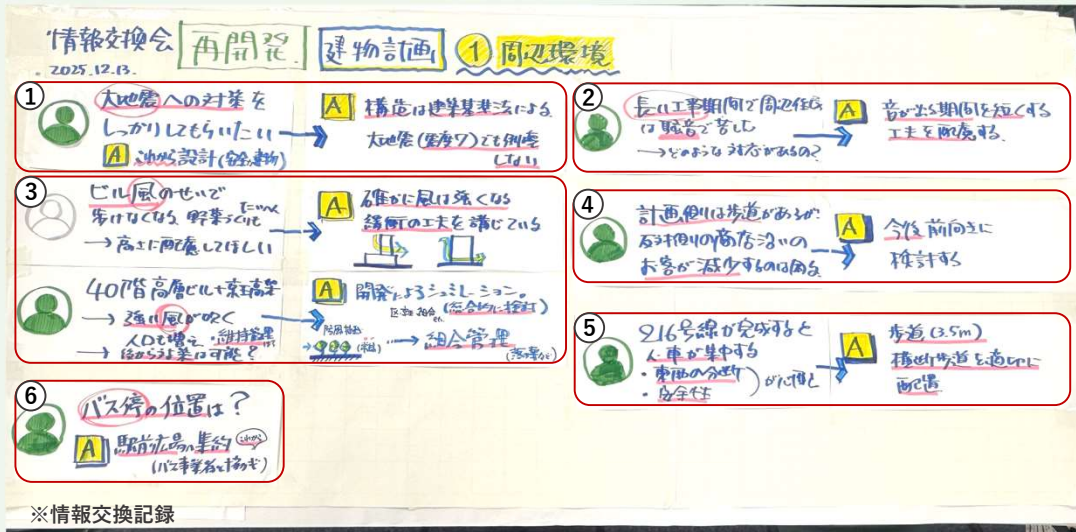 情報交換会 再開発 建物計画 ① 周辺環境
2025.12.13.
①
大地震への対策を
しっかりしてもらいたい
A これから設計(安全な建物)
A 構造は建築基準法による
大地震(震度7)でも倒壊
しない
②
長い工事期間で周辺住民
は騒音で苦しむ
→どのような対応があるの?
A 音が出る期間を短くする
工夫を配慮する
③
ビル風のせいで
歩けなくなる
→高さに配慮してほしい
A 確かに風は強くなる
工夫を講じている
40階高層ビル+
→強い風が吹く
人口も増え・維持管理
→ は可能?
A 開発によるシミュレーション。
(総合的に検討)
防風植栽
→組合管理
④
計画側は歩道があるが
側の商店沿いの
お客が減少するのは困る
A 今後前向きに
検討する
⑤
216号線が完成すると
人・車が集中する
・東西の分断
・安全性
が心配
A 歩道(3.5m)
横断歩道を適切に
配置
⑥
バス停の位置は?
A 駅前広場へ集約 これから
(バス事業者と協力も)
※情報交換記録